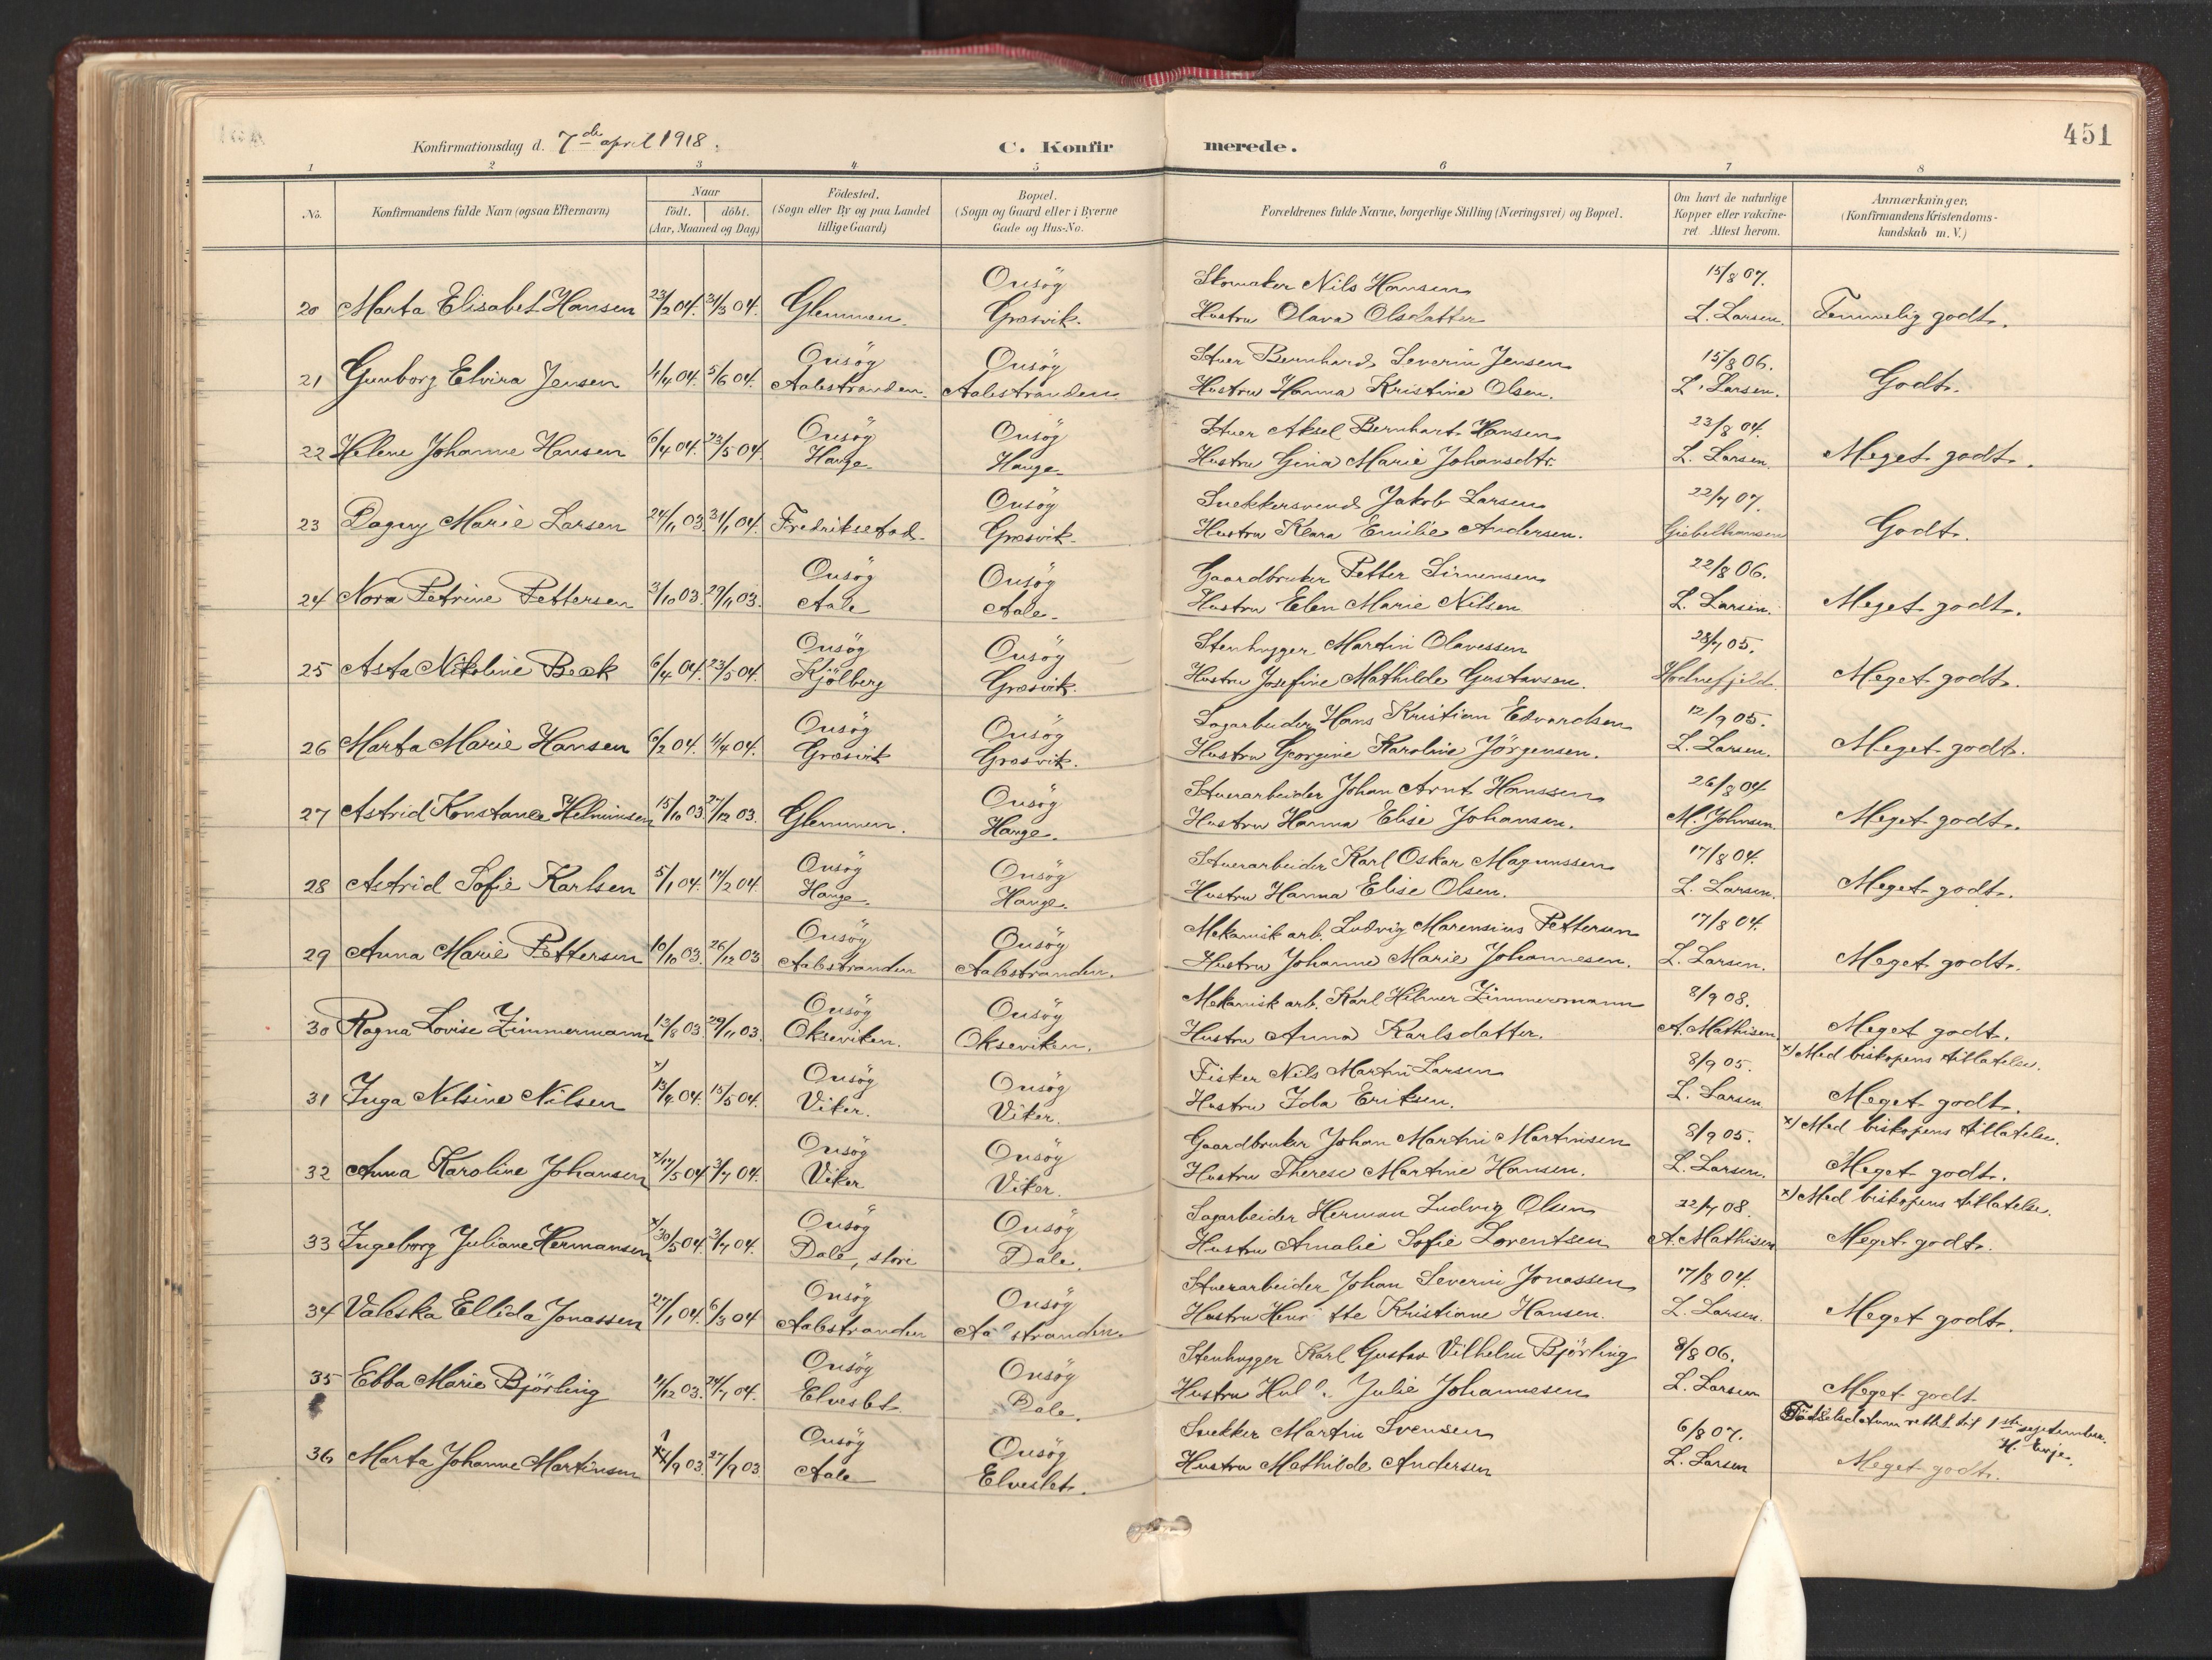 451
Konfirmationsdag d. 7de april 1918.
C. Konfirmerede.
1 2 3 4 5 6 7 8
No.
Konfirmandens fulde Navn (ogsaa Efternavn)
Naar
födt. döbt.
(Aar, Maaned og Dag)
Födested.
(Sogn eller By og paa Landet
tillige Gaard)
Bopæl.
(Sogn og Gaard eller i Byerne
Gade og Hus-No.
Forældrenes fulde Navne, borgerlige Stilling (Næringsvei) og Bopæl.
Om havt de naturlige
Kopper eller vakcine-
ret Attest herom.
Anmærkninger.
(Konfirmandens Kristendoms-
kundskab m. V.)
Onsøy Skomaker Nils Hansen 15/8 07.
20 Marta Elisabet Hansen 23/2 04. 31/3 04. Glemmen. Græsvik. Hustru Olava Olsdatter L. Larsen. Temmelig godt.
Onsøy Onsøy Stuer Bernhard Severin Jensen 15/8 06.
21 Gunborg Elvira Jensen 4/4 04. 5/6 04. Aalestranden. Aalestranden. Hustru Hanna Kristine Olsen. L. Larsen. Godt.
Onsøy Onsøy Stuer Aksel Bernhart Hansen 23/8 04.
22 Helene Johanne Hansen 6/4 04. 23/5 04. Hauge Hauge Hustru Gina Marie Johansdtr. L. Larsen. Meget godt.
Onsøy Snekkersvend Jakob Larsen 22/7 07.
23 Dagny Marie Larsen 24/11 03. 31/1 04. Fredrikstad. Græsvik. Hustru Klara Emilie Andersen. Giebelhausen Godt.
Onsøy Onsøy Gaardbruker Petter Simensen 22/8 06.
24 Nora Petrine Pettersen 3/10 03. 29/11 03. Aale Aale. Hustru Elen Marie Nilsen L. Larsen. Meget godt.
Onsøy Onsøy Stenhugger Martin Olavessen 28/7 05.
25 Asta Nikoline Beck 6/4 04. 23/5 04. Kjölberg Græsvik. Hustru Josefine Mathilde Gustavsen. Hodnefjeld. Meget godt.
Onsøy Onsøy Sagarbeider Hans Kristian Edvardsen 12/9 05.
26 Marta Marie Hansen 6/2 04. 4/4 04. Græsvik Græsvik. Hustru Georgine Karoline Jörgensen. L. Larsen. Meget godt.
Onsøy Stuerarbeider Johan Arnt Hanssen 26/8 04
27 Astrid Konstance Helminsen 15/10 03. 27/12 03. Glemmen. Hauge. Hustru Hanna Elise Johansen. M. Johnsen. Meget godt.
Onsøy Onsøy Stuerarbeider Karl Oskar Magnussen 17/8 04.
28 Astrid Sofie Karlsen 5/1 04. 14/2 04. Hauge. Hauge. Hustru Hanna Elise Olsen. L. Larsen. Meget godt.
Onsøy Onsøy Mekanisk arb. Ludvig Marensius Pettersen 17/8 04.
29 Anna Marie Pettersen 10/10 03. 26/12 03 Aalestranden Aalestranden. Hustru Johanne Marie Johannesen. L. Larsen. Meget godt.
Onsøy Onsøy Mekanisk arb. Karl Hilmer Zimmermann 8/9 08.
30 Ragna Lovise Zimmermann 13/8 03. 29/11 03. Okseviken. Okseviken. Hustru Anna Karlsdatter. A. Mathisen Meget godt.
x) Onsøy Onsøy Fisker Nils Martin Larsen 8/9 05. x) Med biskopens tillatelse.
31 Inga Nilsine Nilsen 13/4 04. 15/5 04. Viker. Viker. Hustru Ida Eriksen. L. Larsen Meget godt.
Onsøy Onsøy Gaardbruker Johan Martin Martinsen 8/9 05. x) Med biskopens tillatelse.
32 Anna Karoline Johansen x) 17/5 04 3/7 04. Viker Viker. Hustru Therese Martine Hansen. L. Larsen. Meget godt.
Onsøy Onsøy Sagarbeider Herman Ludvig Olsen 22/7 08. x) Med biskopens tillatelse.
33 Ingeborg Juliane Hermansen x) 30/5 04. 3/7 04. Dale, store Dale. Hustru Amalie Sofie Lorentsen A. Mathisen Meget godt.
Onsøy Onsøy Stuerarbeider Johan Severin Jonassen 17/8 04.
34 Valeska Ellida Jonassen 27/1 04. 6/3 04 Aalestranden Aa stranden. Hustru Henri tte Kristiane Hansen. L. Larsen. Meget godt.
Onsøy Onsøy Stenhugger Karl Gustav Vilhelm Björling 8/8 06.
35 Ebba Marie Björling 11/12 03. 24/7 04. Elveslet. Dale. Hustru Julie Johannesen L. Larsen Meget godt
1 Onsøy Onsøy Snekker Martin Svensen 6/8 07. Födselsdatum rettet til 1ste september.
H. Evje.
36 Marta Johanne Martinsen /9 03. 27/9 03 Aale Elveslet. Hustru Mathilde Andersen L. Larsen Meget godt.